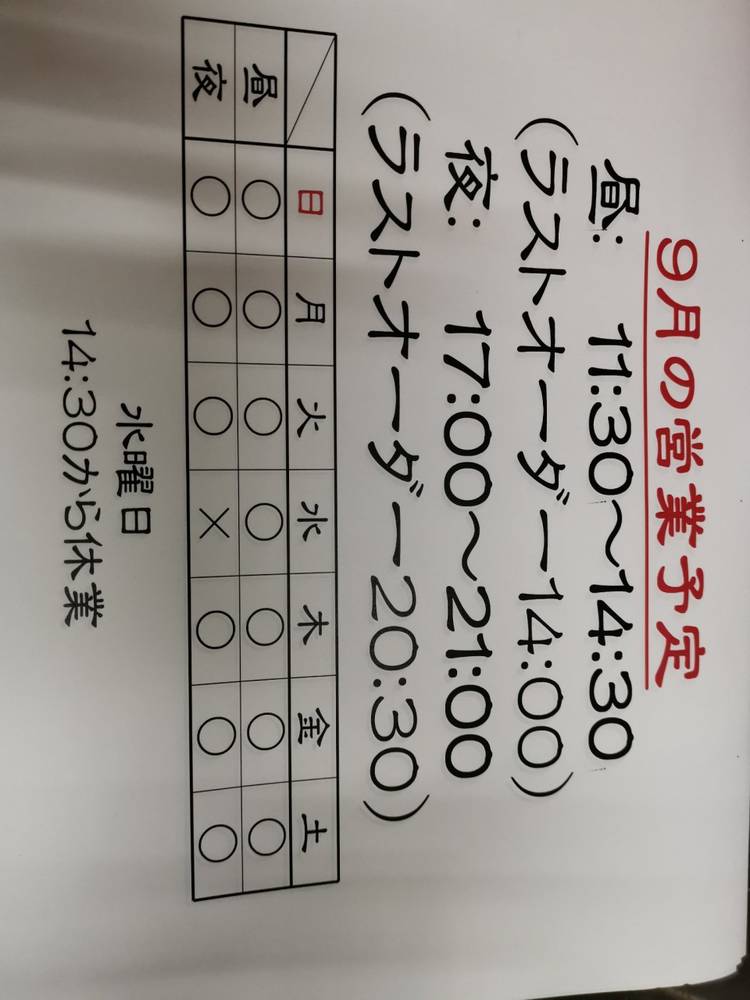 9月の営業予定
昼: 11:30〜14:30
(ラストオーダー14:00)
夜: 17:00〜21:00
(ラストオーダー20:30)
日 月 火 水 木 金 土
昼 ○ ○ ○ ○ ○ ○ ○
夜 ○ ○ ○ × ○ ○ ○
水曜日
14:30から休業